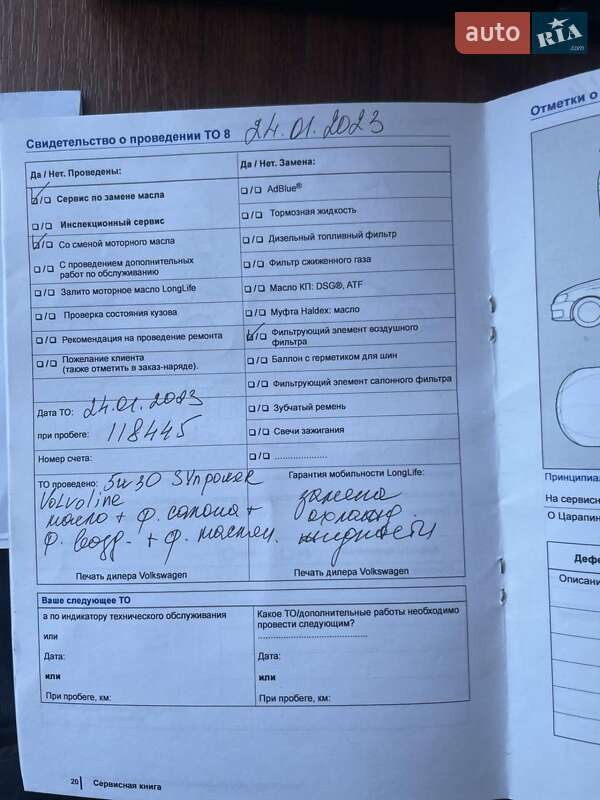 auto RIA .com
Свидетельство о проведении ТО 8 24.01.2023
Отметки о
Да / Нет. Проведены:
❏/❏ Сервис по замене масла
❏/❏ Инспекционный сервис
❏/❏ Со сменой моторного масла
❏/❏ С проведением дополнительных
работ по обслуживанию
❏/❏ Залито моторное масло LongLife
❏/❏ Проверка состояния кузова
❏/❏ Рекомендация на проведение ремонта
❏/❏ Пожелание клиента
(также отметить в заказ-наряде).
Да / Нет. Замена:
❏/❏ AdBlue®
❏/❏ Тормозная жидкость
❏/❏ Дизельный топливный фильтр
❏/❏ Фильтр сжиженного газа
❏/❏ Масло КП: DSG®, ATF
❏/❏ Муфта Haldex: масло
❏/❏ Фильтрующий элемент воздушного
фильтра
❏/❏ Баллон с герметиком для шин
❏/❏ Фильтрующий элемент салонного фильтра
❏/❏ Зубчатый ремень
❏/❏ Свечи зажигания
❏/❏ .....................
Дата ТО: 24.01.2023
при пробеге: 118445
Номер счета:
ТО проведено: 5w30
Volvoline
масло + ф. салона +
ф. возд. - + ф. маслян.
Печать дилера Volkswagen
Гарантия мобильности LongLife:
замена
охлажд.
жидкости
Печать дилера Volkswagen
Ваше следующее ТО
а по индикатору технического обслуживания
или
Дата:
или
При пробеге, км:
Какое ТО/дополнительные работы необходимо
провести следующим?
.........................................
Дата:
или
При пробеге, км:
20 Сервисная книга
Принципиа
На сервисн
О Царапин
Дефе
Описани